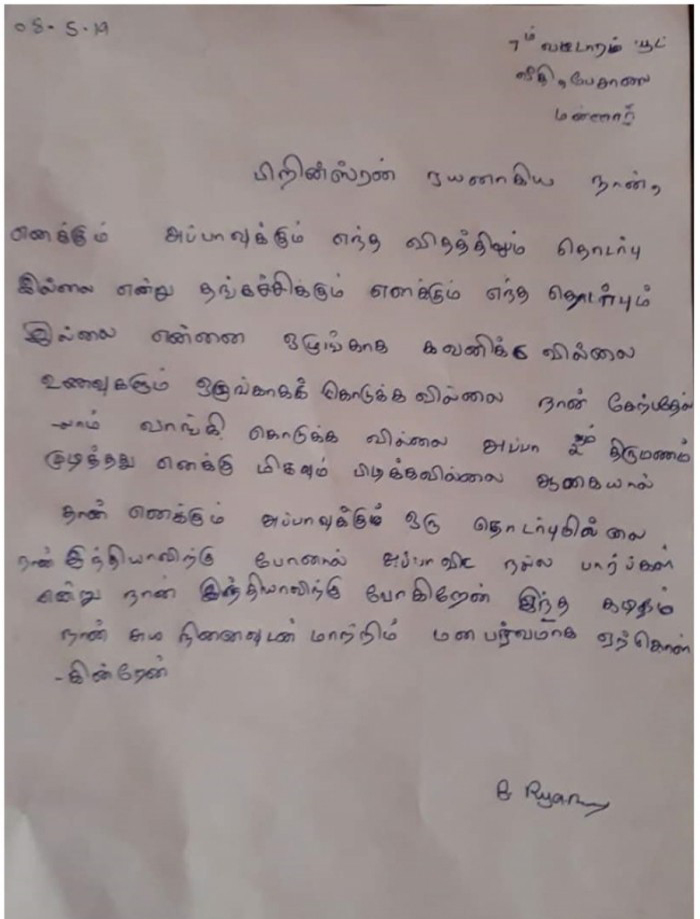 08-5-19
7ம் வட்டாரம் யூட்
வீதி, பேசாலை
மன்னார்
பிறின்ஸ்ரன் றயனாகிய நான்,
எனக்கும் அப்பாவுக்கும் எந்த விதத்திலும் தொடர்பு
இல்லை என்று தங்கச்சிக்கும் எனக்கும் எந்த தொடர்பும்
இல்லை என்னை ஒழுங்காக கவனிக்க வில்லை
உணவுகளும் ஒழுங்காகக் கொடுக்கவில்லை நான் கேற்பதெல்
-லாம் வாங்கி கொடுக்க வில்லை அப்பா 2ம் திருமணம்
முடித்தது எனக்கு மிகவும் பிடிக்கவில்லை ஆகையால்
தான் எனக்கும் அப்பாவுக்கும் ஒரு தொடர்புமில்லை
நான் இந்தியாவிற்கு போனால் அப்பாவிட நல்ல பார்ப்கள்
என்று நான் இந்தியாவிற்கு போகிறேன் இந்த கடிதம்
நான் சுய நினைவுடன் மாற்றிம் மன பூர்வமாக ஏற்கொள்
-கின்றேன்
B. Ryan